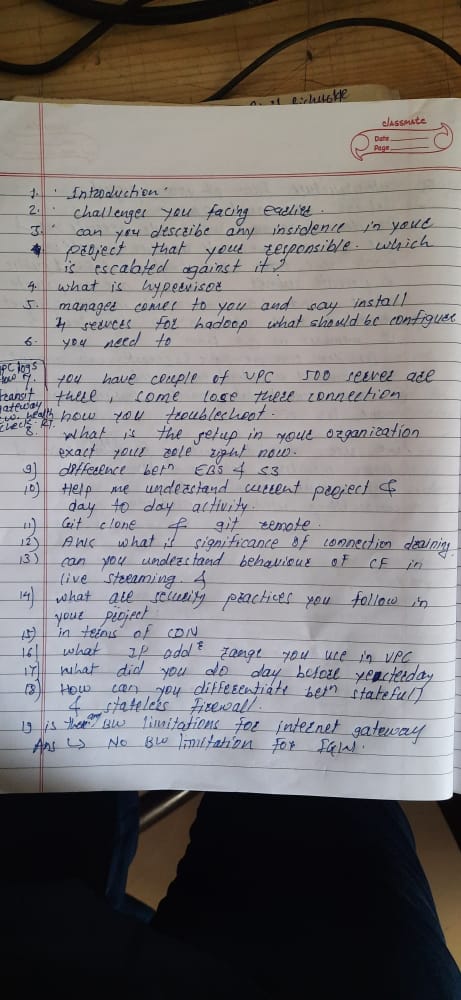 classmate
Date
Page
1. Introduction.
2. challenges you facing earlier.
3. can you describe any insidence in your
project that your responsible. which
is escalated against it?
4. what is hypervisor
5. manager comes to you and say install
4 servers for hadoop what should be configure
6. you need to
VPC logs
flow 7. you have couple of VPC 500 server are
transit there, some lose there connection
gateway how you troubleshoot.
c.w. health
check. R7.
8. What is the setup in your organization
exact your role right now.
9) difference betn EBS & S3
10) Help me understand current project &
day to day activity.
11) Git clone & git remote.
12) AWS what is significance of connection draining
13) can you understand behaviour of CF in
live streaming.
14) what are security practices you follow in
your project.
15) in terms of CDN
16) what IP addr range you use in VPC
17) what did you do day before yesterday
18) How can you differentiate betn statefull
& stateless firewall.
19 is there any BW limitations for internet gateway
Ans ↳ No BW limitation for IGW.